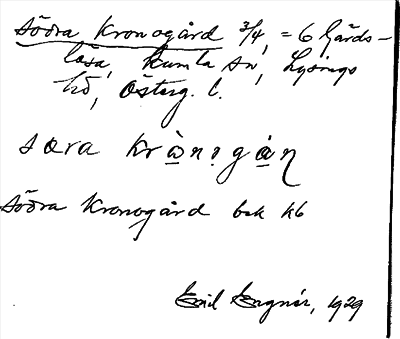 Södra Kronogård 3/4, = 6 Gårds-
lösa, Kumla sn, Lysings
hd, Österg. l.
sœra kròn​ogàɳ
Södra Kronogård bsk kb
Emil Engnér, 1929